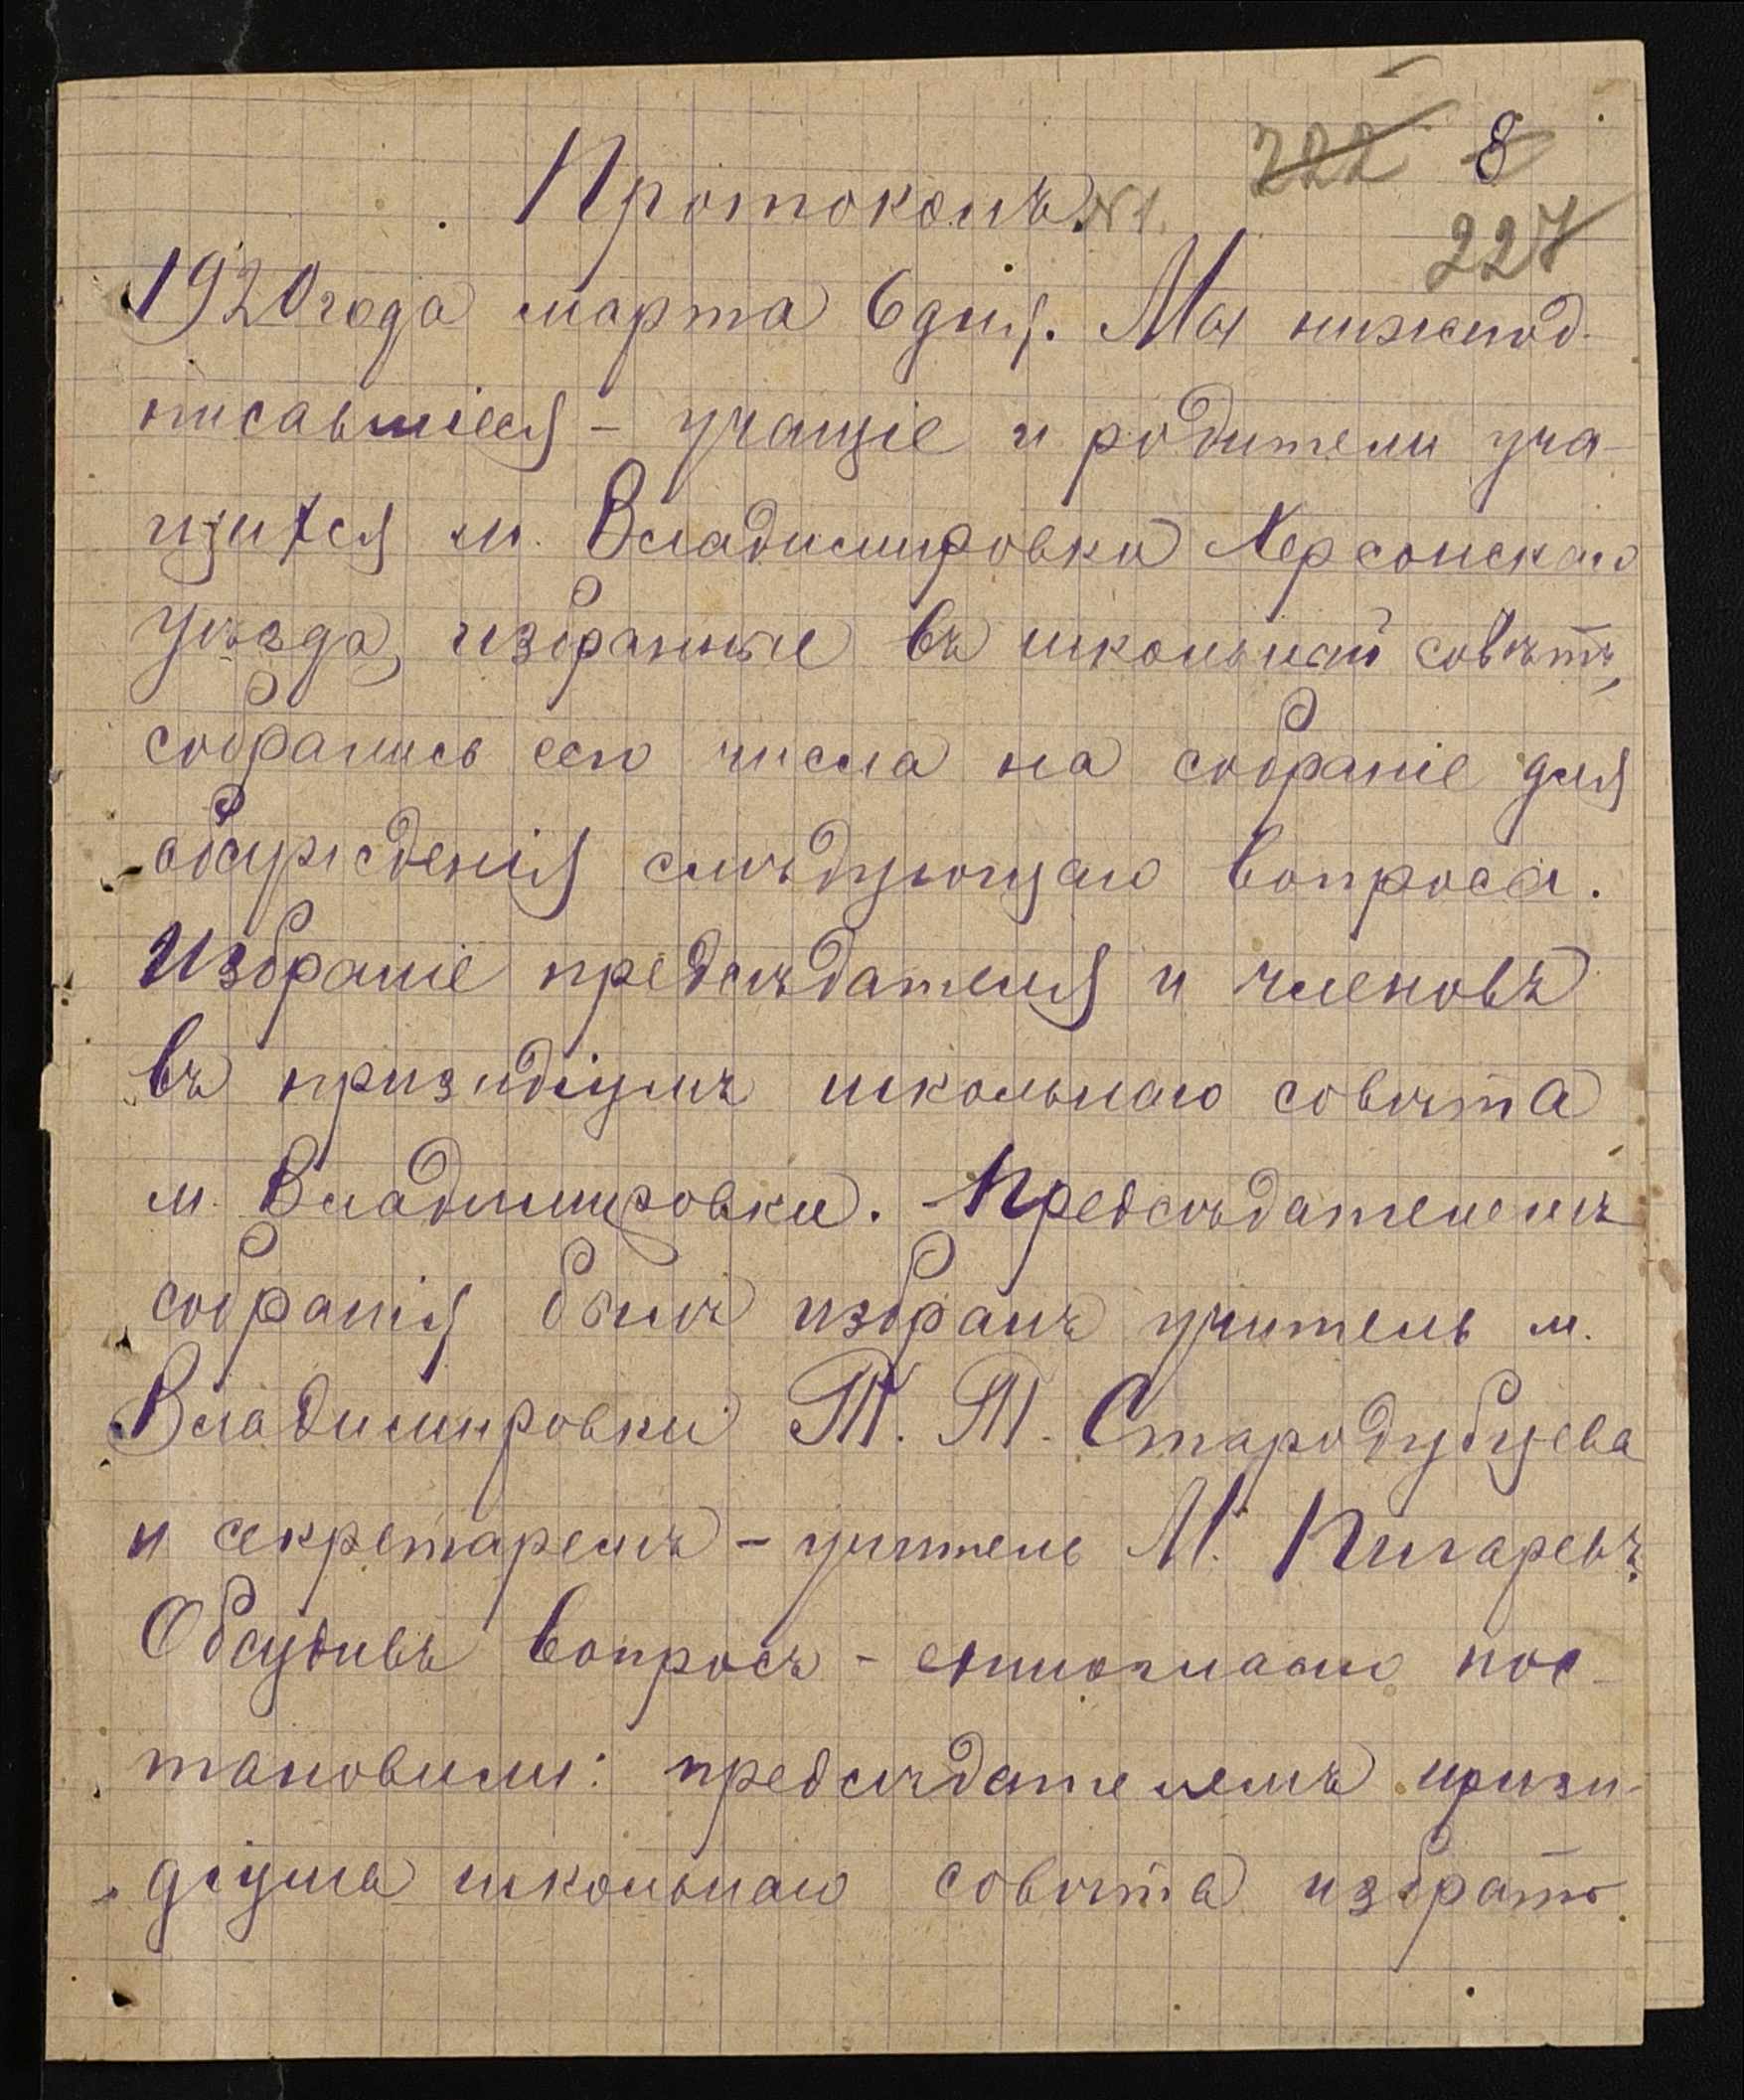 222 8
Протоколъ №1.
227
1920 года марта 6 дня. Мы нижепод-
писавшіеся - учащіе и родители уча-
щихся м. Владимировки Херсонскаго
уѣзда, избранные въ школьный совѣтъ,
собрались сего числа на собраніе для
обсужденія слѣдующаго вопроса.
Избраніе предсѣдателя и членовъ
въ призидіумъ школьнаго совѣта
м. Владимировки. Предсѣдателемъ
собранія былъ избранъ учитель м.
Владимировки Т. Т. Стародубцева
и секретаремъ - учитель М. Пигаревъ.
Обсудивъ вопросъ - единогласно пос-
тановили: предсѣдателемъ призи-
діума школьнаго совѣта избрать